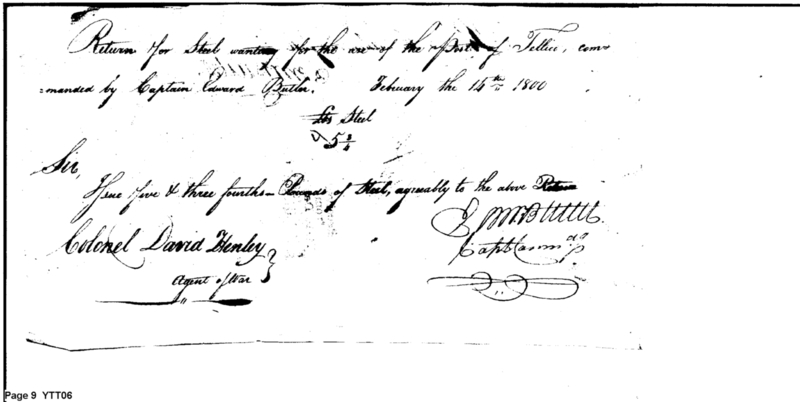 Return for Steel wanting for the use of the Post of Tellico, com
=manded by Captain Edward Butler. February the 14th 1800
lbs Steel
5 3/4
Sir,
Issue five & three fourths Pounds of Steel, agreeably to the above Return
Colonel David Henley
Agent of War
Capt. Comm
Page 9 YTT06